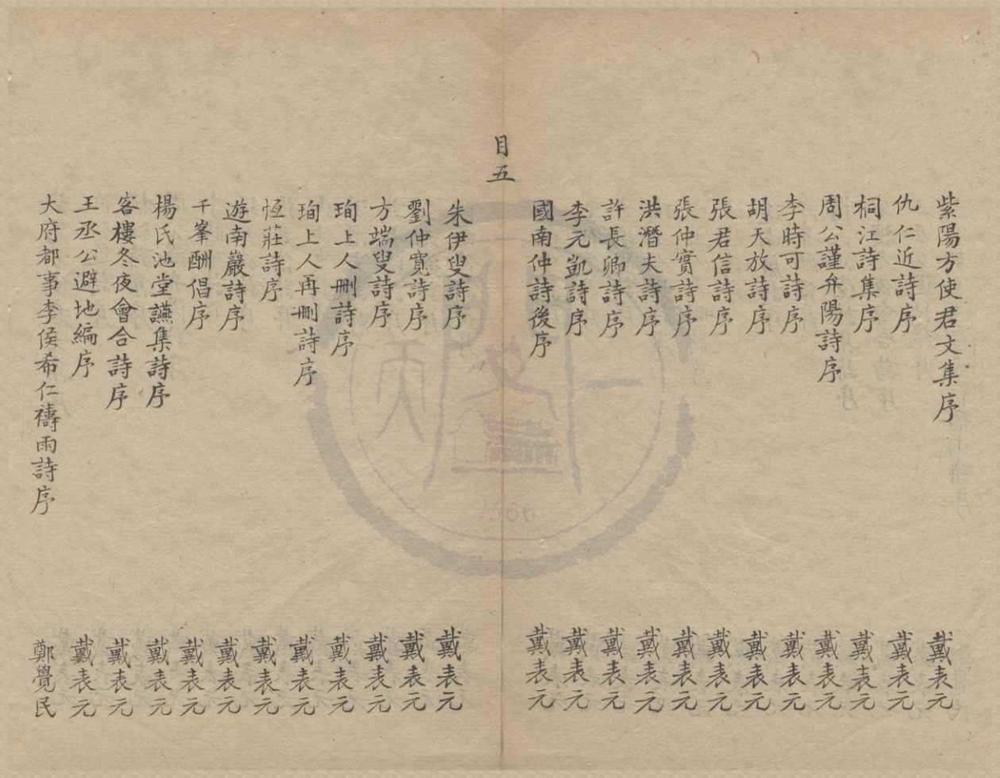 紫陽方使君文集序 戴表元
仇仁近詩序 戴表元
桐江詩集序 戴表元
周公謹弁陽詩序 戴表元
李時可詩序 戴表元
胡天放詩序 戴表元
張君信詩序 戴表元
張仲實詩序 戴表元
洪潛夫詩序 戴表元
許長卿詩序 戴表元
李元凱詩序 戴表元
國南仲詩後序 戴表元
目五
朱伊叟詩序 戴表元
劉仲寬詩序 戴表元
方端叟詩序 戴表元
珣上人刪詩序 戴表元
珣上人再刪詩序 戴表元
恆莊詩序 戴表元
遊南巖詩序 戴表元
千峯酬倡序 戴表元
楊氏池堂讌集詩序 戴表元
客樓冬夜會合詩序 戴表元
王丞公避地編序 戴表元
大府都事李侯希仁禱雨詩序 鄭覺民